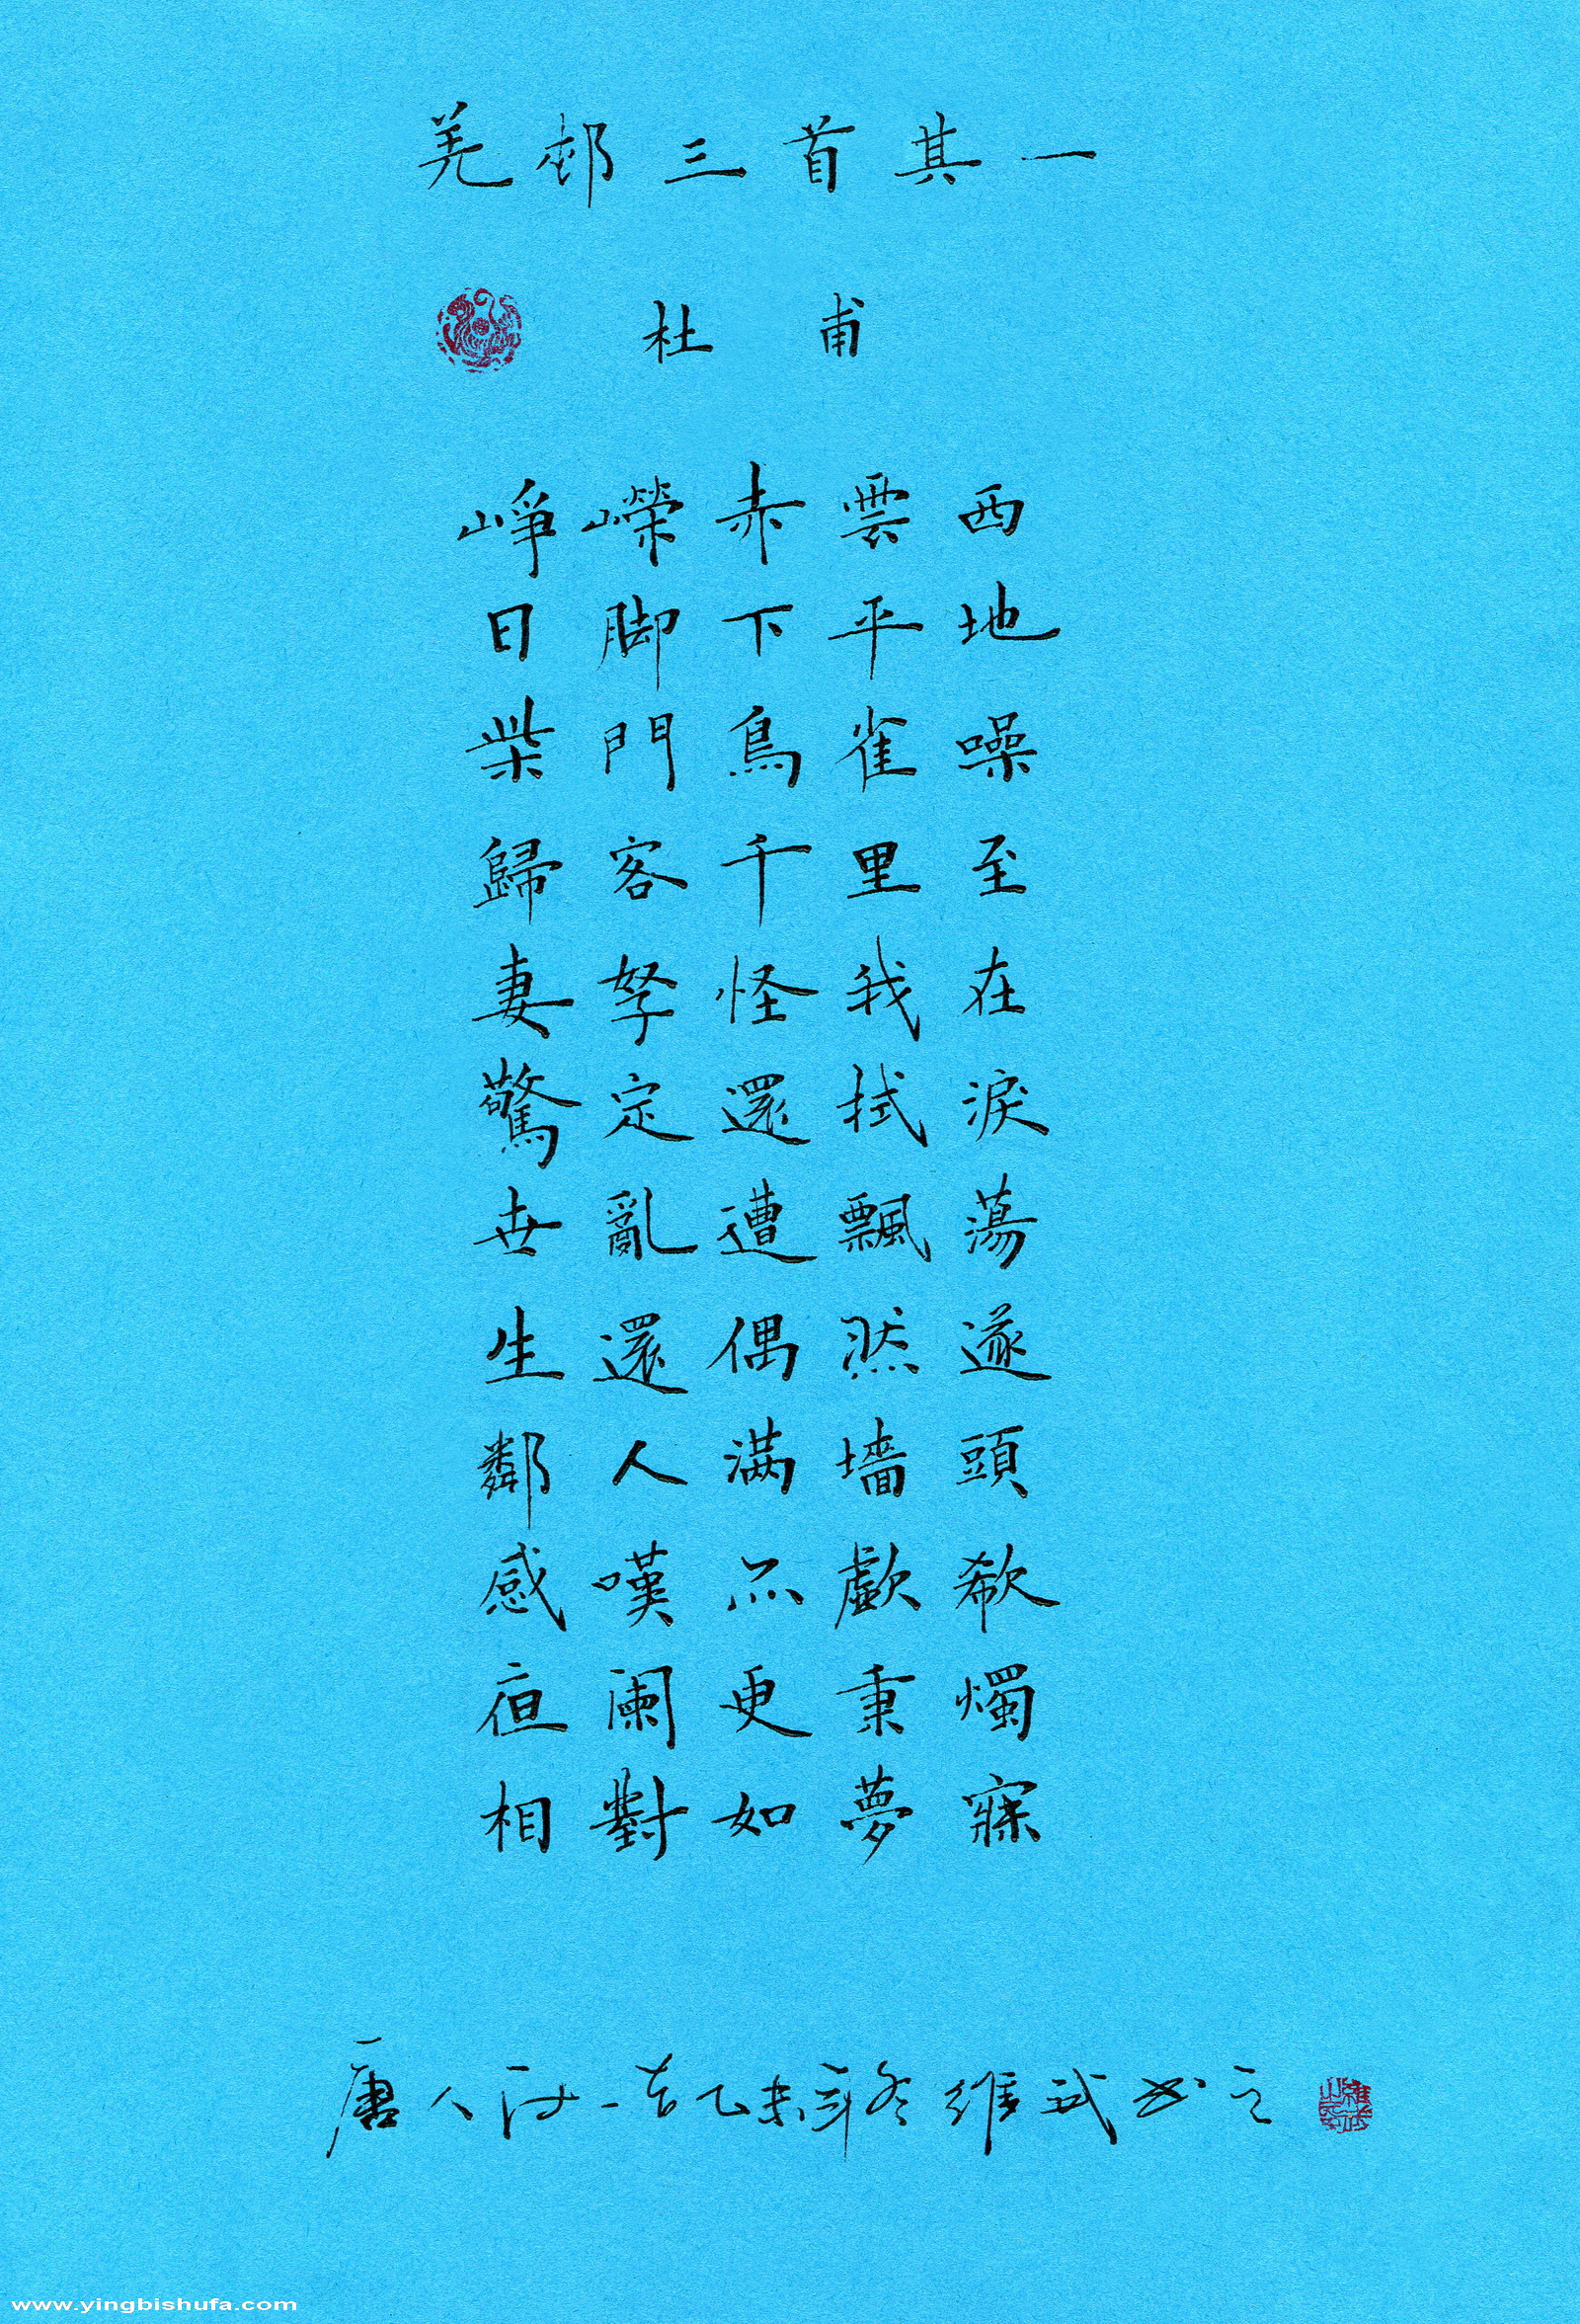 羌邨三首其一
杜甫
崢嶸赤雲西
日脚下平地
柴門鳥雀噪
歸客千里至
妻孥怪我在
驚定還拭淚
世亂遭飄蕩
生還偶然遂
鄰人满墻頭
感嘆亦歔欷
夜阑更秉燭
相對如夢寐
唐人诗一首乙未年冬维武书之
www.yingbishufa.com